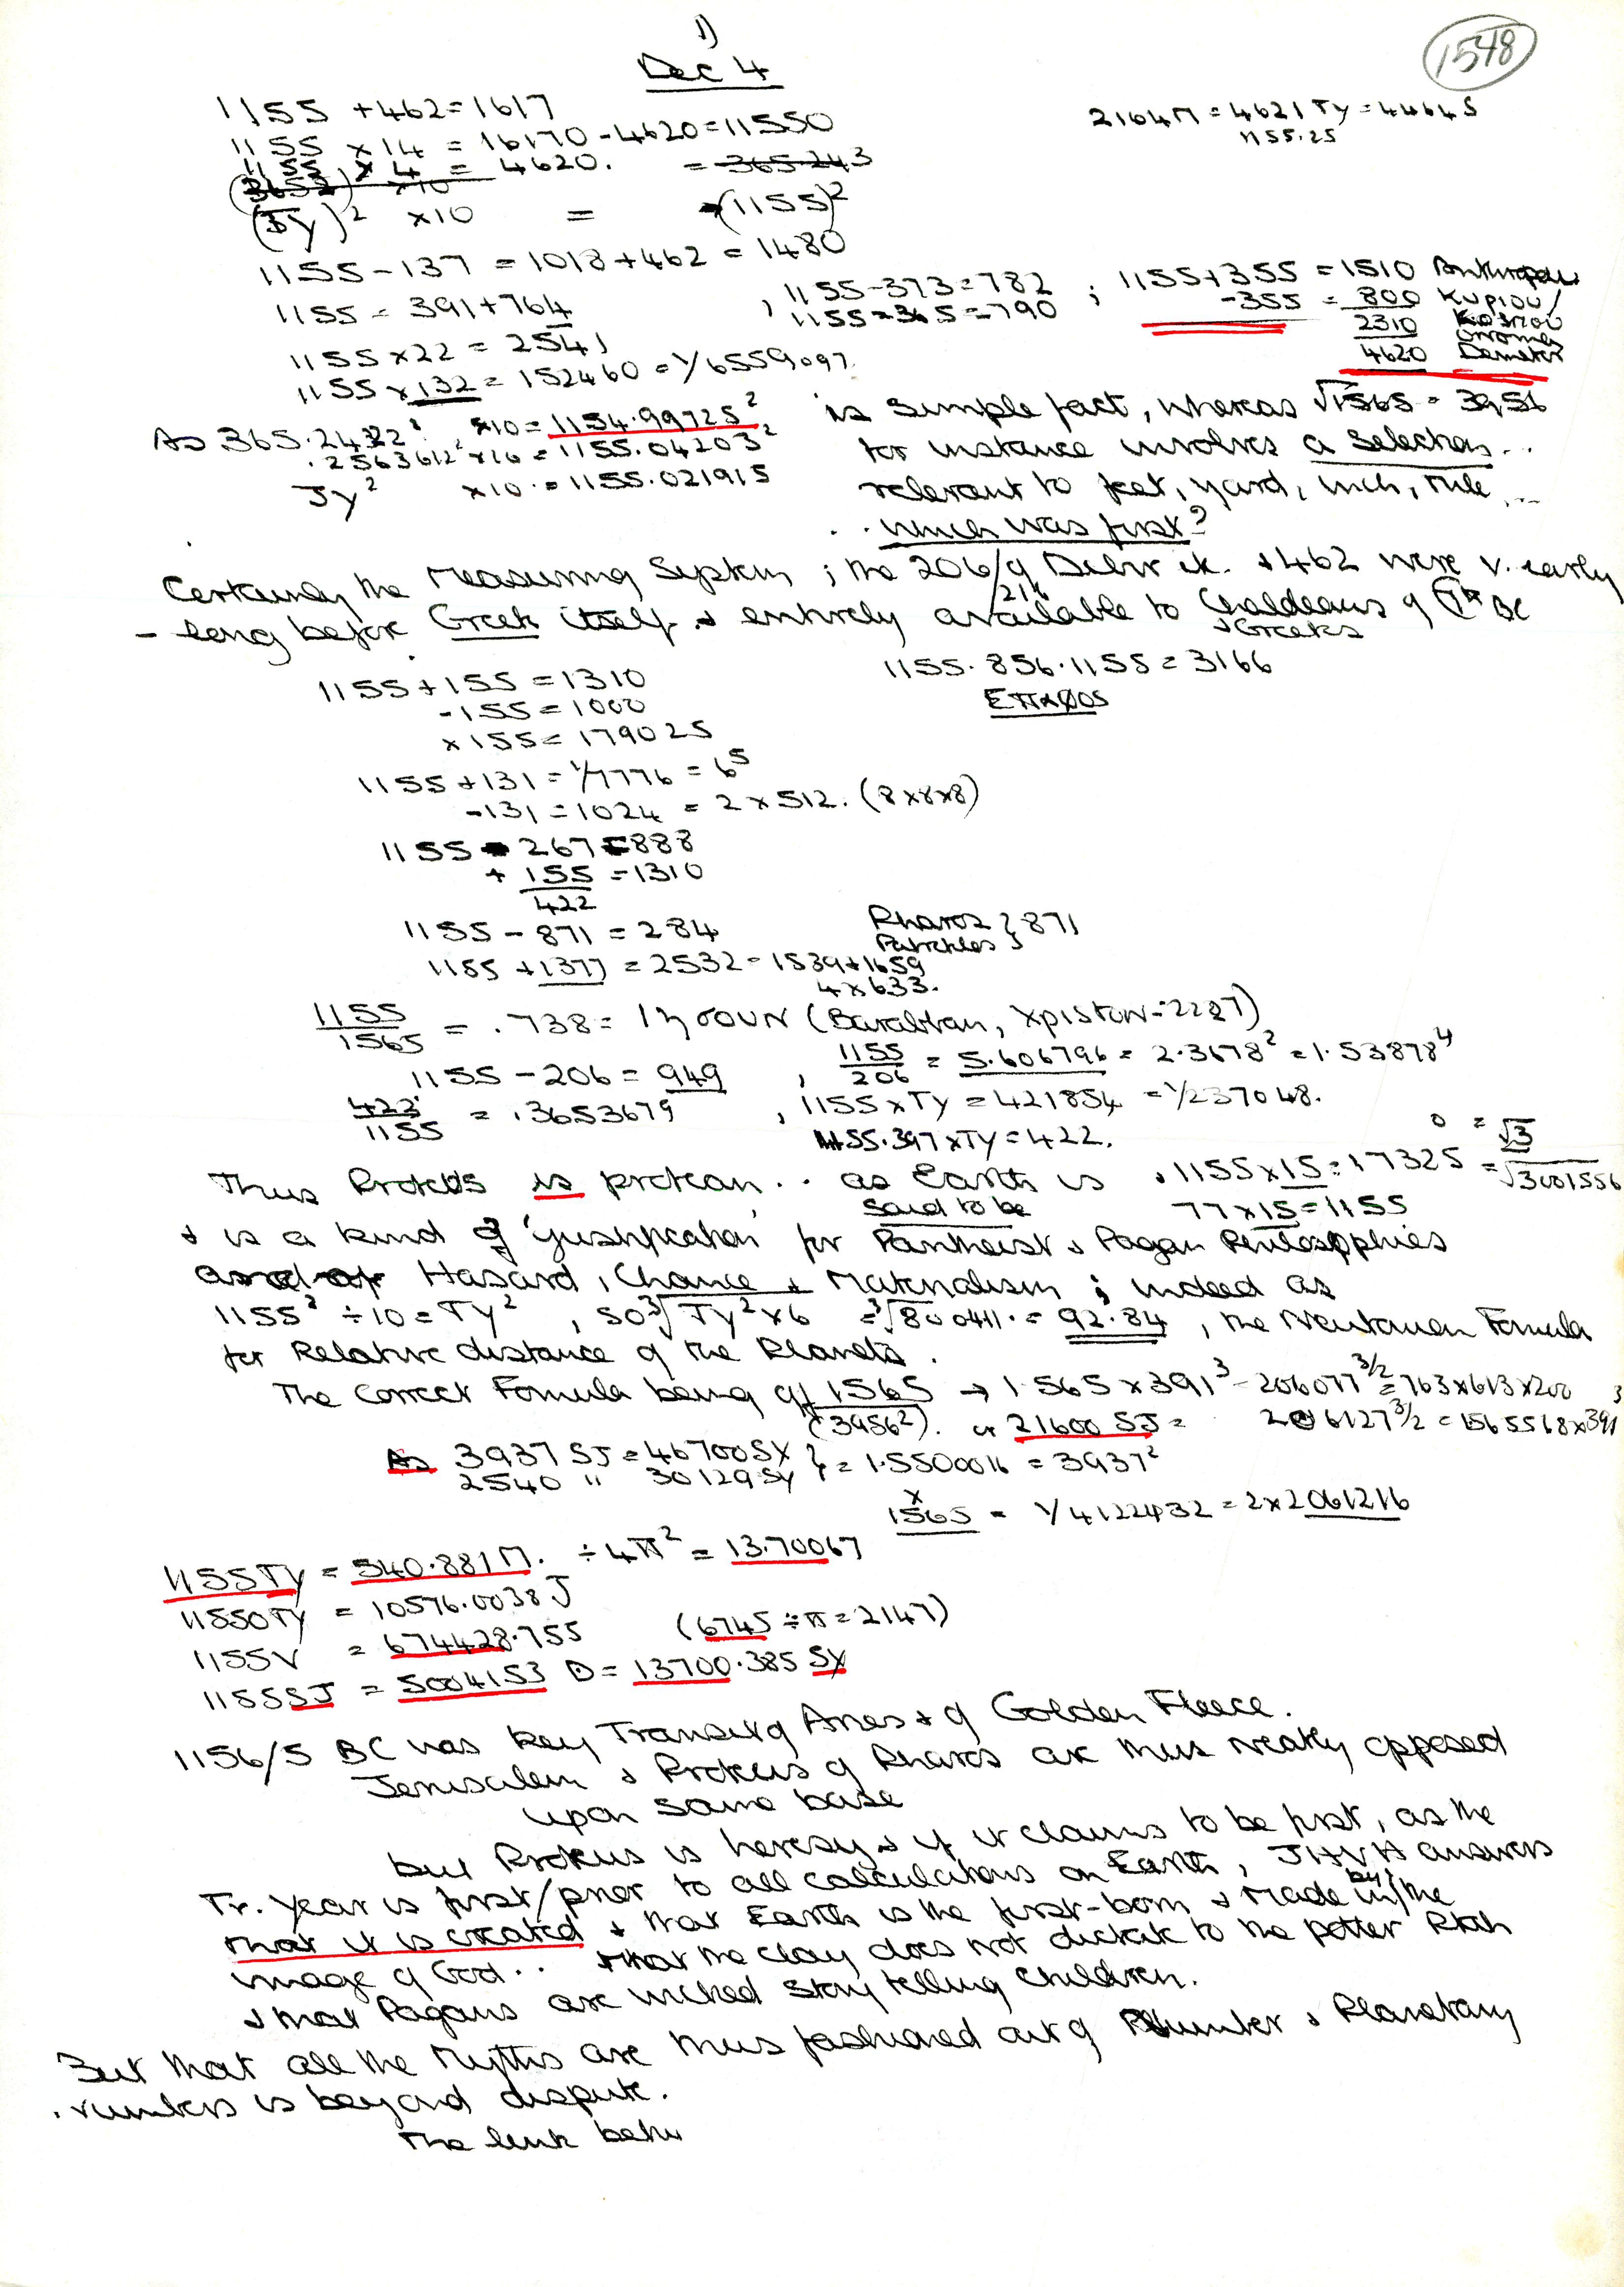 1)
Dec 4
1548
1155 + 462 = 1617
2164M = 4621 Ty = 44645
1155.25
1155 x 14 = 16170 - 4620 = 11550
1155 x 4 = 4620. = 365.243
(Jy)² x10 = (1155)²
1155 - 137 = 1018 + 462 = 1480
1155 = 391 + 764
, 1155 - 373 = 782
1155 - 365 = 790
; 1155 + 355 = 1510
-355 = 800 Κυριου
2310 Κοσμου
4620 Demeter
1155 x 22 = 2541
1155 x 132 = 152460 = 1/6559097.
As 365.2422² x10 = 1154.99725²
.2563612² x10 = 1155.04203²
Jy² x10 = 1155.021915
is simple fact, whereas √1565 = 3956
for instance involves a selection...
relevant to feet, yard, inch, rule...
.. which was first?
Certainly the Measuring System ; the 206/9 + 462 were v. early
216
- long before Greek itself & entirely available to Chaldeans of 7th BC
& Greeks
1155 + 155 = 1310
- 155 = 1000
x 155 = 179025
1155.856.1155 = 3166
1155 + 131 = 1/7776 = 6⁵
- 131 = 1024 = 2 x 512. (8x8x8)
1155 - 267 = 888
+ 155 = 1310
422
1155 - 871 = 284
Pharos } 871
Patrokles
1155 + 1377 = 2532 = 1539 + 1659
4 x 633.
1155/1565 = .738 = Ιησουν (Barabban, Χριστον = 2227)
1155 - 206 = 949 , 1155/206 = 5.606796 = 2.3678² = 1.53878⁴
422/1155 = .3653679 , 1155 x Ty = 421854 = 1/237048.
1155.397 x Ty = 422.
Thus Proteus is protean .. as Earth is
said to be
, 1155 x 15 = 17325 = √3
= √3001556
77 x 15 = 1155
& is a kind of 'justification' for Pantheist & Pagan Philosophies
Hasard, Chance & Materialism ; indeed as
1155² ÷ 10 = Ty² , so ³√Ty² x 6 = ³√800411. = 92.84, the Newtonian Formula
for Relative distance of the Planets.
The Correct Formula being of 1565 → 1.565 x 391³ = 206077^3/2 = 763 x 613 x 200
(3956²). or 21600 SJ = 206127^3/2 = 1565568 x 391³
As 3937 SJ = 46700 SX } = 1.5500016 = 3937²
2540 " 30129 Sy
x
1565 = 1/4122432 = 2 x 2061216
1155 Ty = 540.881 M. ÷ 4π² = 13.70067
11550 Ty = 10576.0038 J
1155 V = 674428.755 (6745 ÷ π = 2147)
1155 SJ = 5004153 D = 13700.385 SX
1156/5 BC was key Transit of Aries & of Golden Fleece.
Jerusalem & Proteus of Pharos are thus neatly opposed
upon same base
but Proteus is heresy & if it claims to be first, as the
Tr. Year is first/prior to all calculations on Earth, JHVH answers
that it is created & that Earth is the first-born & made in/by the
image of God .. that the clay does not dictate to the potter Ptah
& that Pagans are wicked story telling children.
But that all the Myths are thus fashioned out of Number & Planetary
numbers is beyond dispute.
The link betw